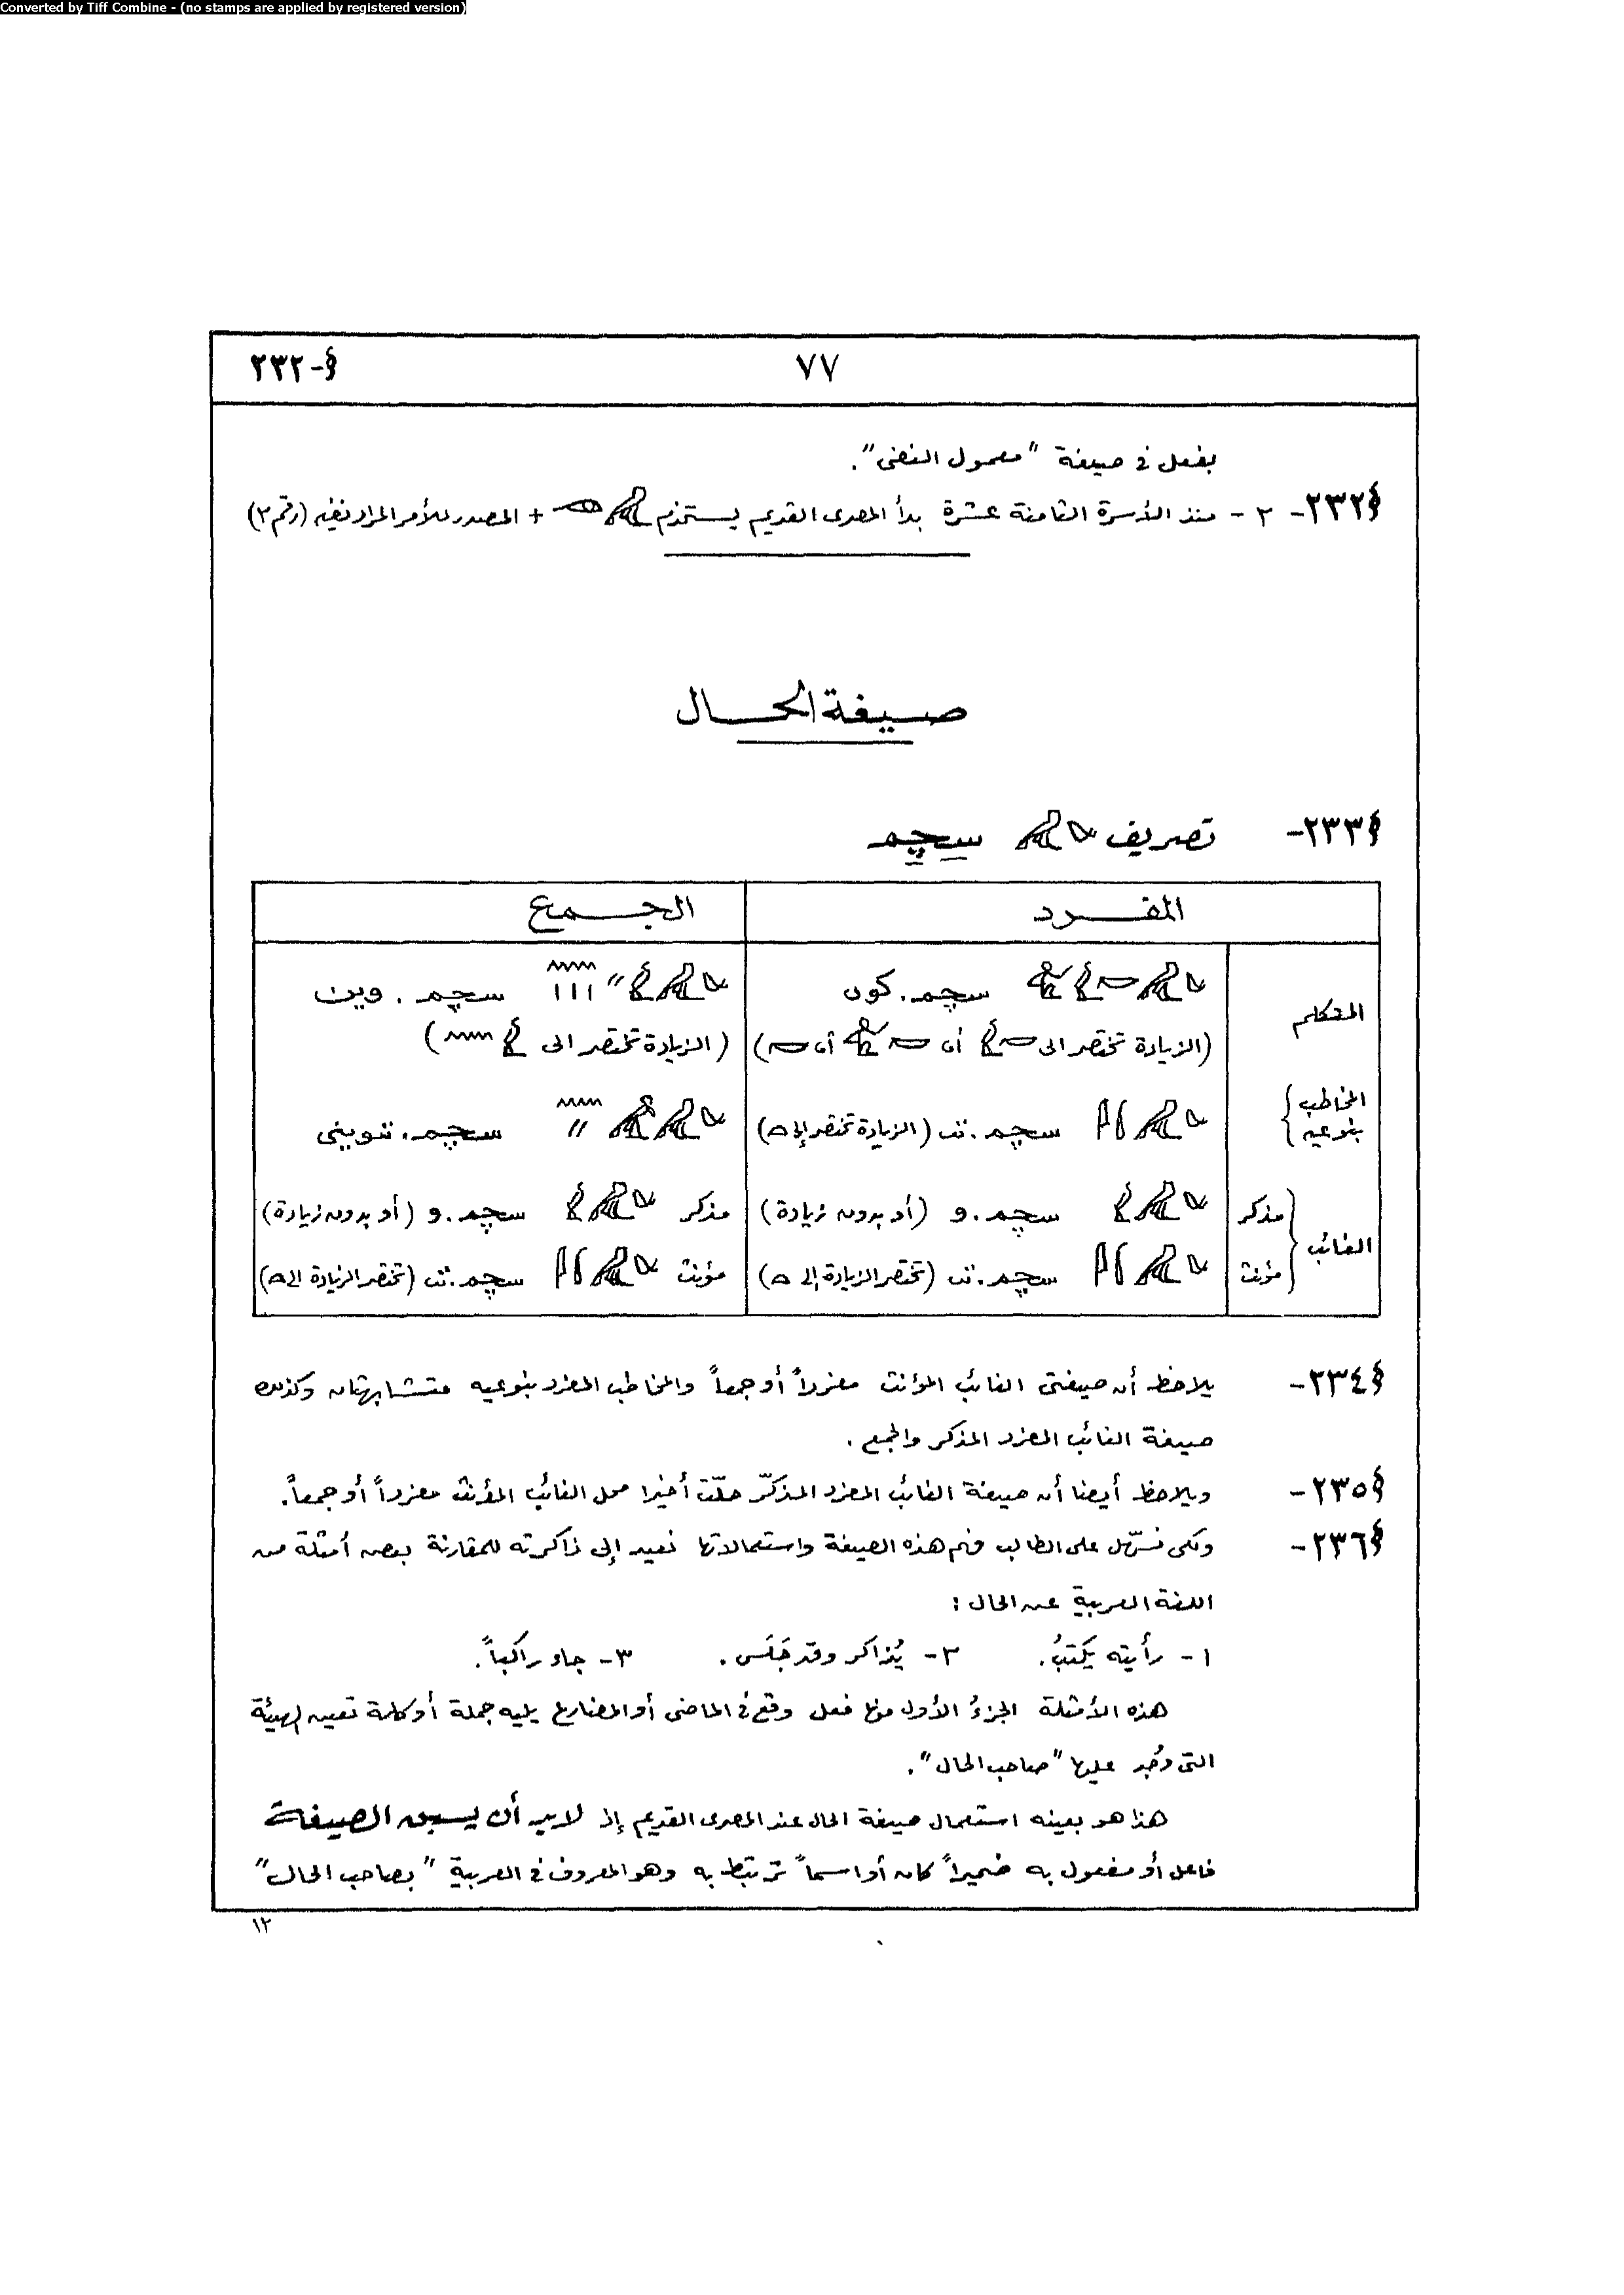 Converted by Tiff Combine - (no stamps are applied by registered version)
§-٢٣٢
٧٧
بفعل فى صيغة "معمول النفى".
§٢٣٢- ٢ - منذ الأسرة الثامنة عشرة بدأ المصرى القديم يستخدم + المصدر للأمر المراد نفيه (رقم ٢)
صيغة الحال
§٢٣٣- تصريف سچم
المفرد
الجمع
المتكلم
سچم. كوى
سچم. وين
(الزيادة تختصر الى أى أى)
(الزيادة تختصر الى)
المخاطب بنوعيه
سچم. تى (الزيادة تختصر إلى)
سچم. تيوينى
الغائب
مذكر
سچم. و (أو بدون زيادة)
مذكر
سچم. و (أو بدون زيادة)
مؤنث
سچم. تى (تختصر الزيادة إلى)
مؤنث
سچم. تى (تختصر الزيادة إلى)
§٢٣٤- يلاحظ أن صيغتى الغائب المؤنث مفرداً أو جمعاً والمخاطب المفرد بنوعيه متشابهتان وكذلك
صيغة الغائب المفرد المذكر والجمع.
§٢٣٥- ويلاحظ أيضا أن صيغة الغائب المفرد المذكّر حلّت أخيرا محل الغائب المؤنث مفرداً أو جمعاً.
§٢٣٦- ولكى نسّهل على الطالب فهم هذه الصيغة واستعمالاتها نعيد إلى ذاكرته للمقارنة بعض أمثلة من
اللغة العربية عن الحال :
١ - رأيته يَكتبُ. ٢ - يُذاكر وقد جَلَس. ٣ - جاء راكباً.
هذه الأمثلة الجزءُ الأول منها فعل وقع فى الماضى أو المضارع يليه جملة أو كلمة تعين الهيئة
التى وُجد عليها "صاحب الحال".
هذا هو بعينه استعمال صيغة الحال عند المصرى القديم إذ لابد أن يسبق الصيغة
فاعل أو مفعول به ضميراً كان أو اسماً ترتبط به وهو المعروف فى العربية "بصاحب الحال"
١٢